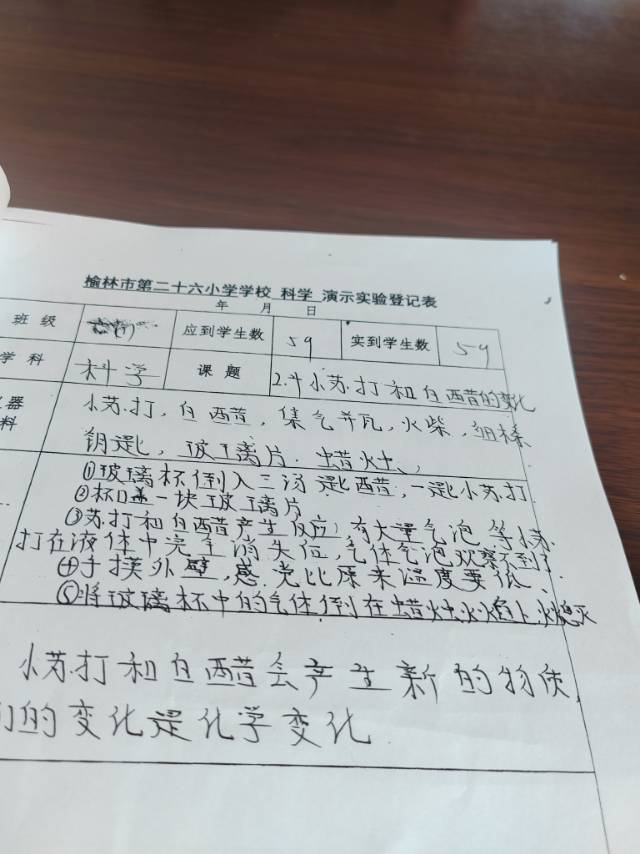 榆林市第二十六小学学校 科学 演示实验登记表
年 月 日
班 级 应到学生数 59 实到学生数 59
学 科 科学 课 题 2.4小苏打和白醋的变化
器 小苏打,白醋,集气并瓦,火柴,细棒
料 钥匙,玻璃片.蜡烛、
①玻璃杯倒入三汤匙醋,一匙小苏打.
②杯口盖一块玻璃片
③苏打和白醋产生反应,有大量气泡,等小苏
打在液体中完全消失位,气体气泡观察不到了
④手摸外壁,感觉比原来温度要低、
⑤将玻璃杯中的气体倒在蜡烛火焰上.火熄灭
小苏打和白醋会产生新的物质,
们的变化是化学变化